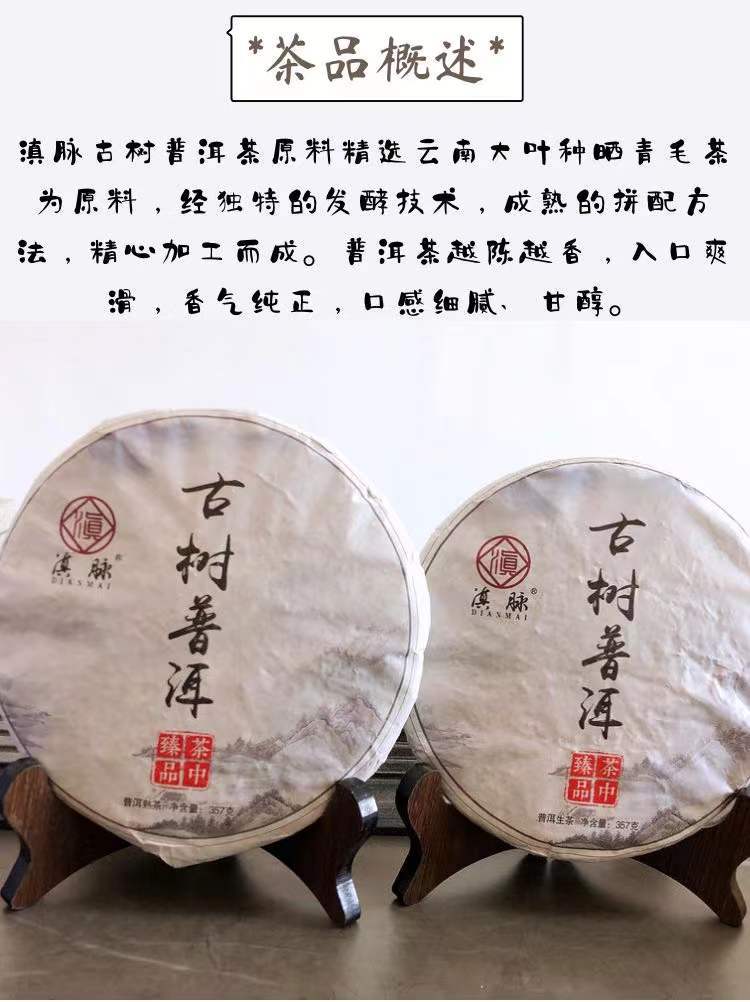 *茶品概述*
滇脉古树普洱茶原料精选云南大叶种晒青毛茶
为原料，经独特的发酵技术，成熟的拼配方
法，精心加工而成。普洱茶越陈越香，入口爽
滑，香气纯正，口感细腻、甘醇。
滇
滇脉®
DIANMAI
古树普洱
茶中
臻品
普洱熟茶 净含量：357克
滇
滇脉®
DIANMAI
古树普洱
茶中
臻品
普洱生茶 净含量：357克